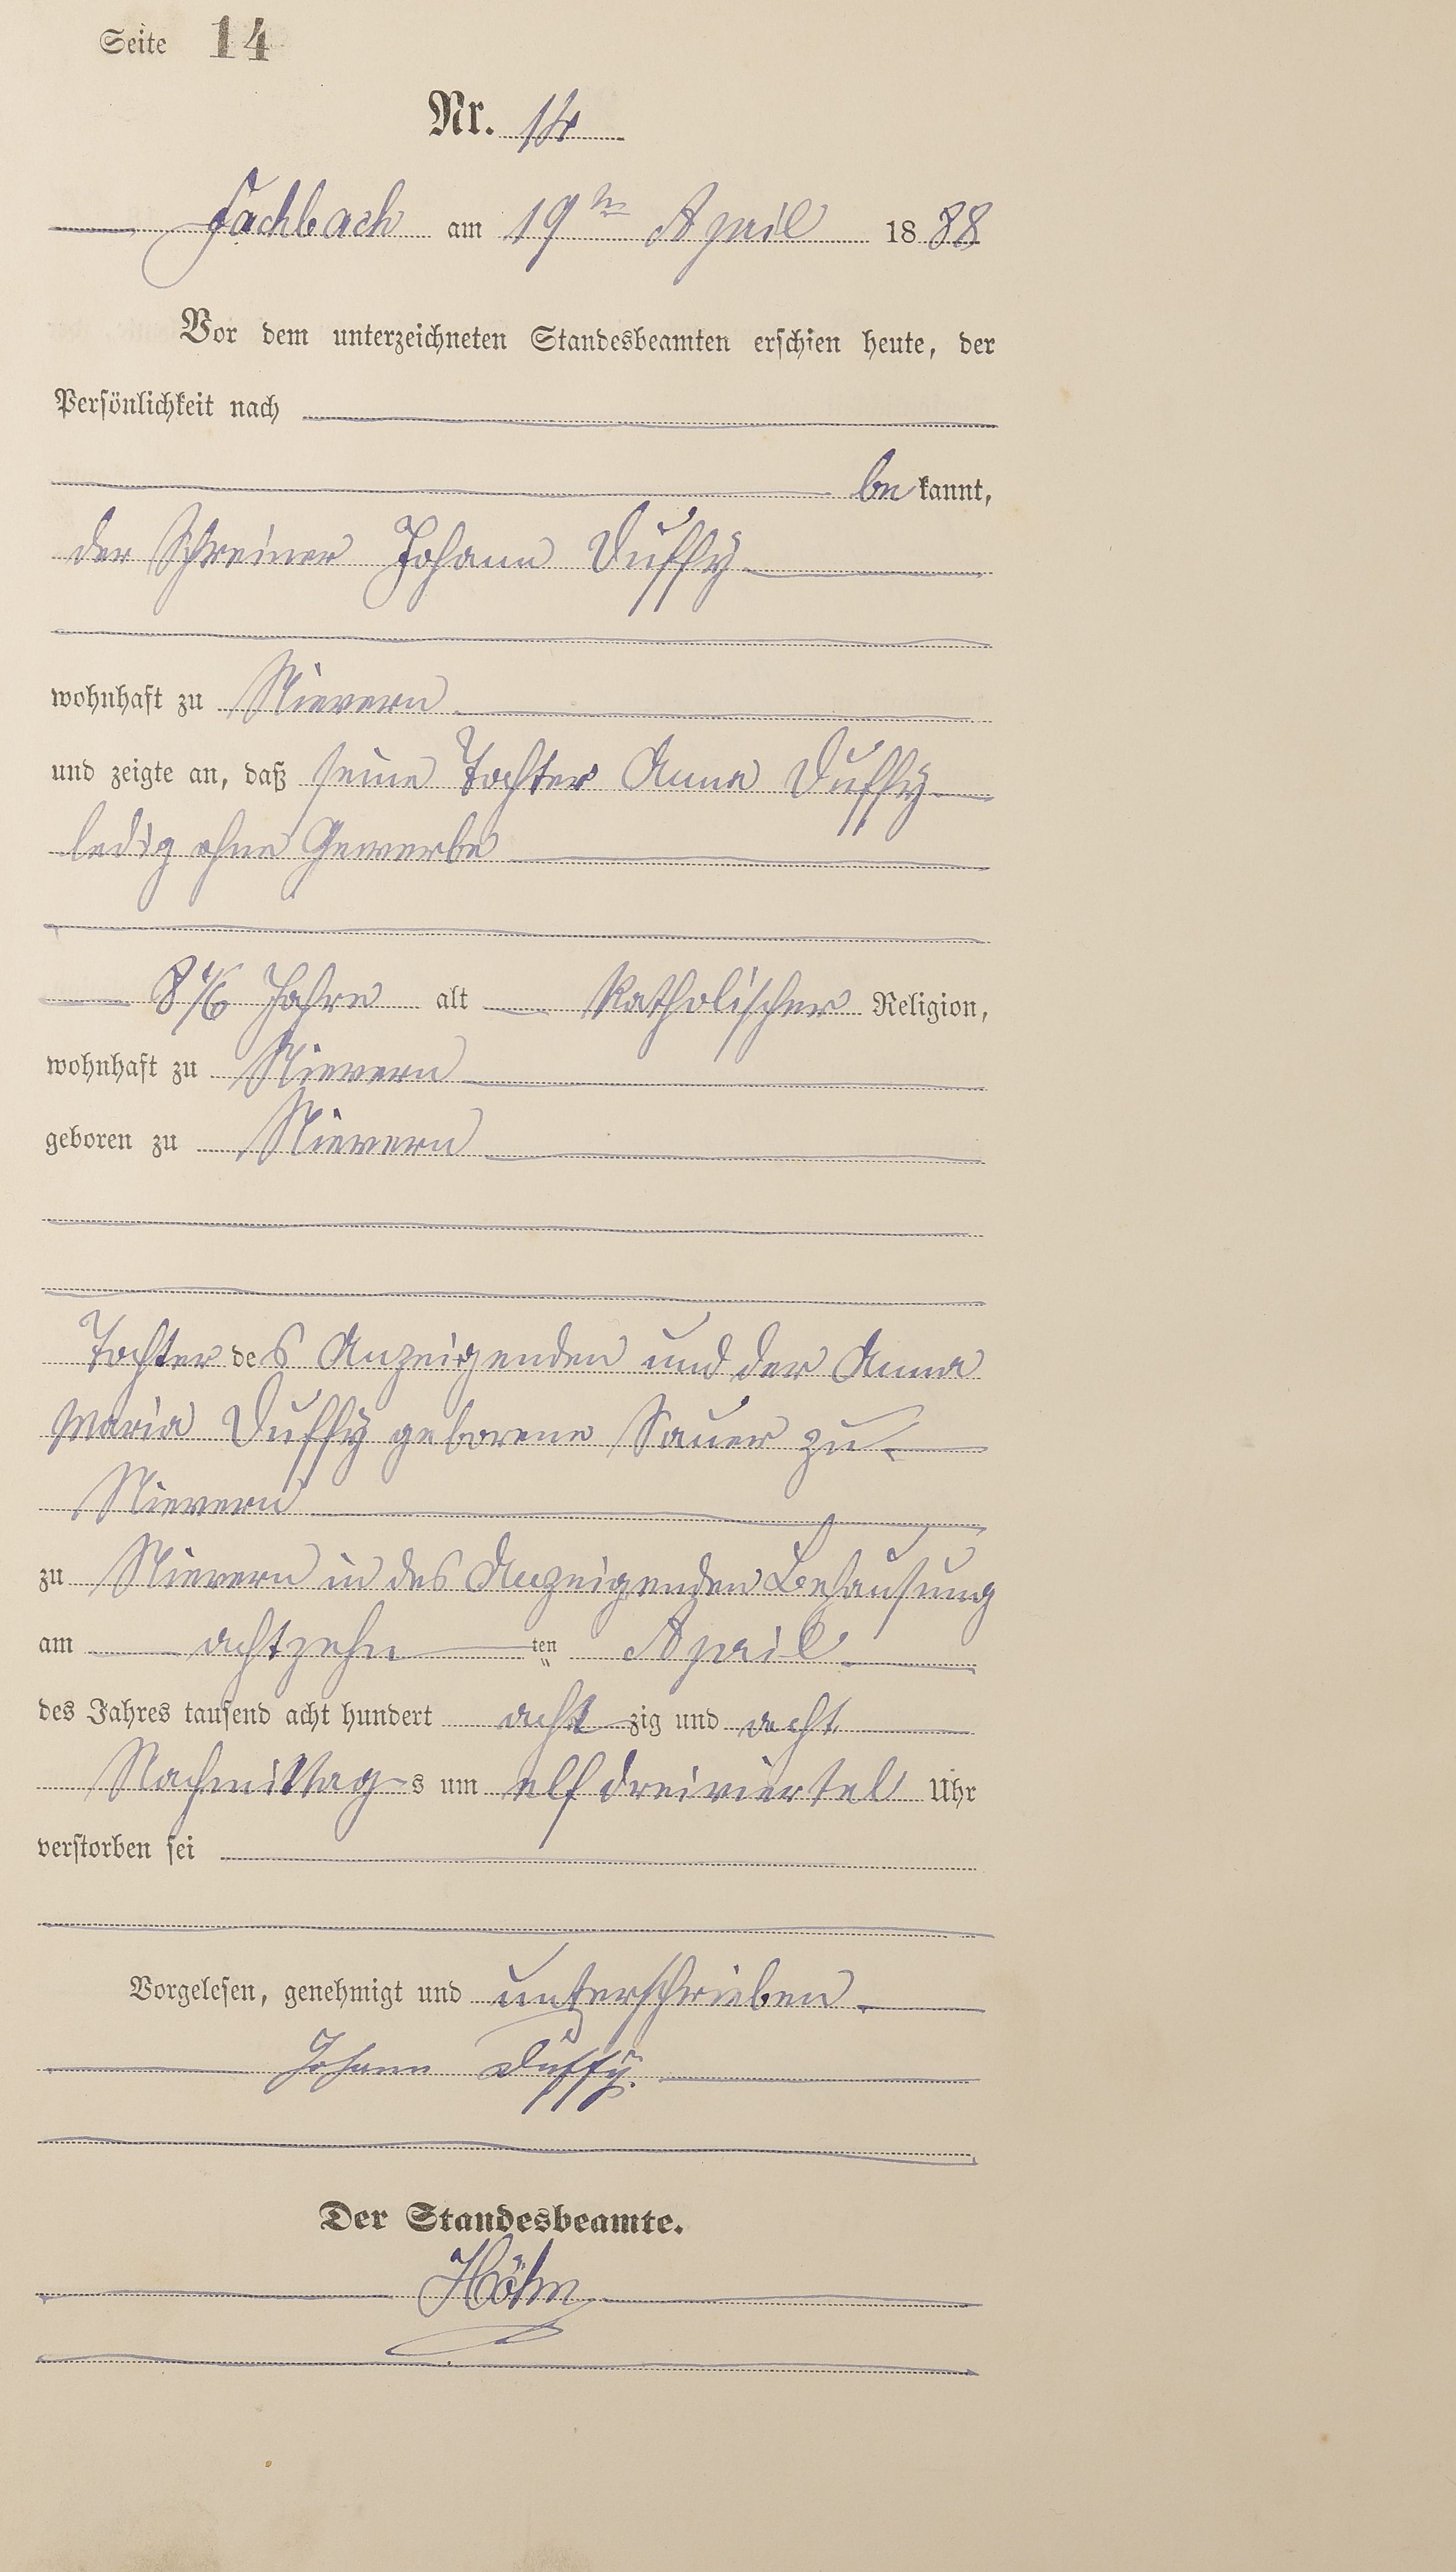 Seite 14
Nr. 14
Fachbach am 19ten April 1888
Vor dem unterzeichneten Standesbeamten erschien heute, der
Persönlichkeit nach
bekannt,
der Schreiner Johann Duffÿ
wohnhaft zu Nievern
und zeigte an, daß seine Tochter Anna Duffÿ
ledig ohne Gewerbe
8 1/6 Jahre alt Katholischer Religion,
wohnhaft zu Nievern
geboren zu Nievern
Tochter des Anzeigenden und der Anna
Maria Duffÿ geborene Sauer zu
Nievern
zu Nievern in des Anzeigenden Behausung
am achtzehnten April
des Jahres tausend acht hundert achtzig und acht
Nachmittags um elf dreiviertel Uhr
verstorben sei
Vorgelesen, genehmigt und unterschrieben
Johann Duffÿ.
Der Standesbeamte.
Höhn